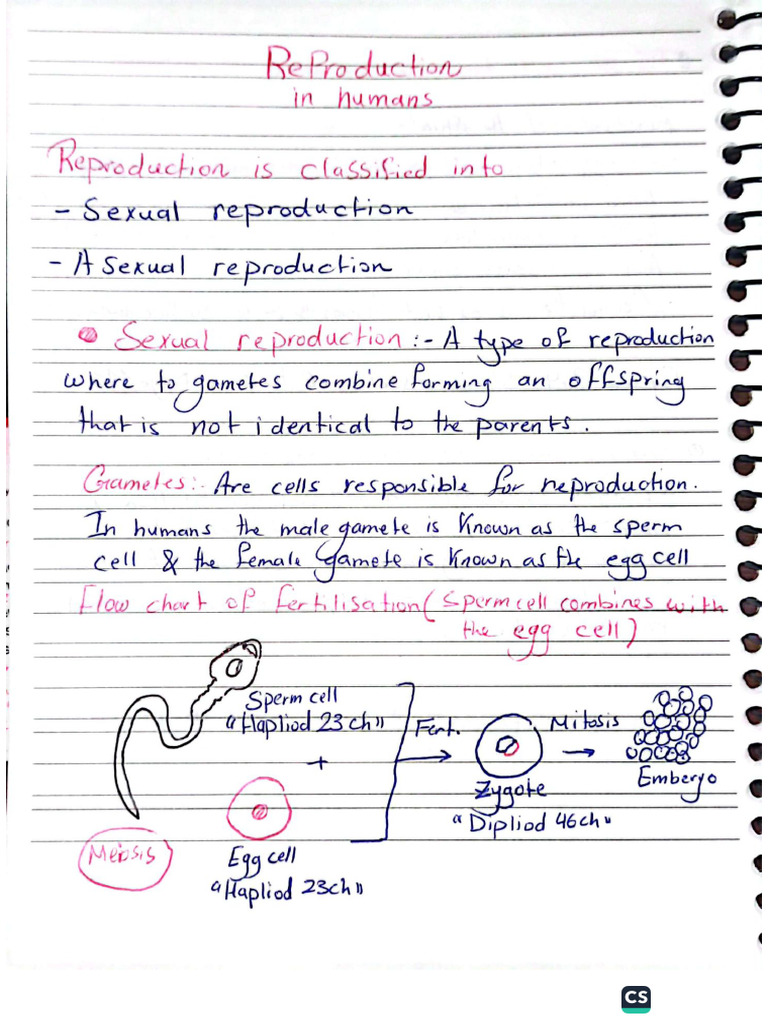 Reproduction
in humans
Reproduction is classified into
- Sexual reproduction
- A Sexual reproduction
Sexual reproduction :- A type of reproduction
where to gametes combine forming an offspring
that is not identical to the parents.
Gametes:- Are cells responsible for reproduction.
In humans the male gamete is known as the sperm
cell & the female gamete is known as the egg cell
Flow chart of fertilisation (sperm cell combines with
the egg cell)
Sperm cell
"Hapliod 23 ch"
+
Fert.
Mitosis
Zygote
"Dipliod 46ch"
Emberyo
Meiosis
Egg cell
"Hapliod 23ch"
CS